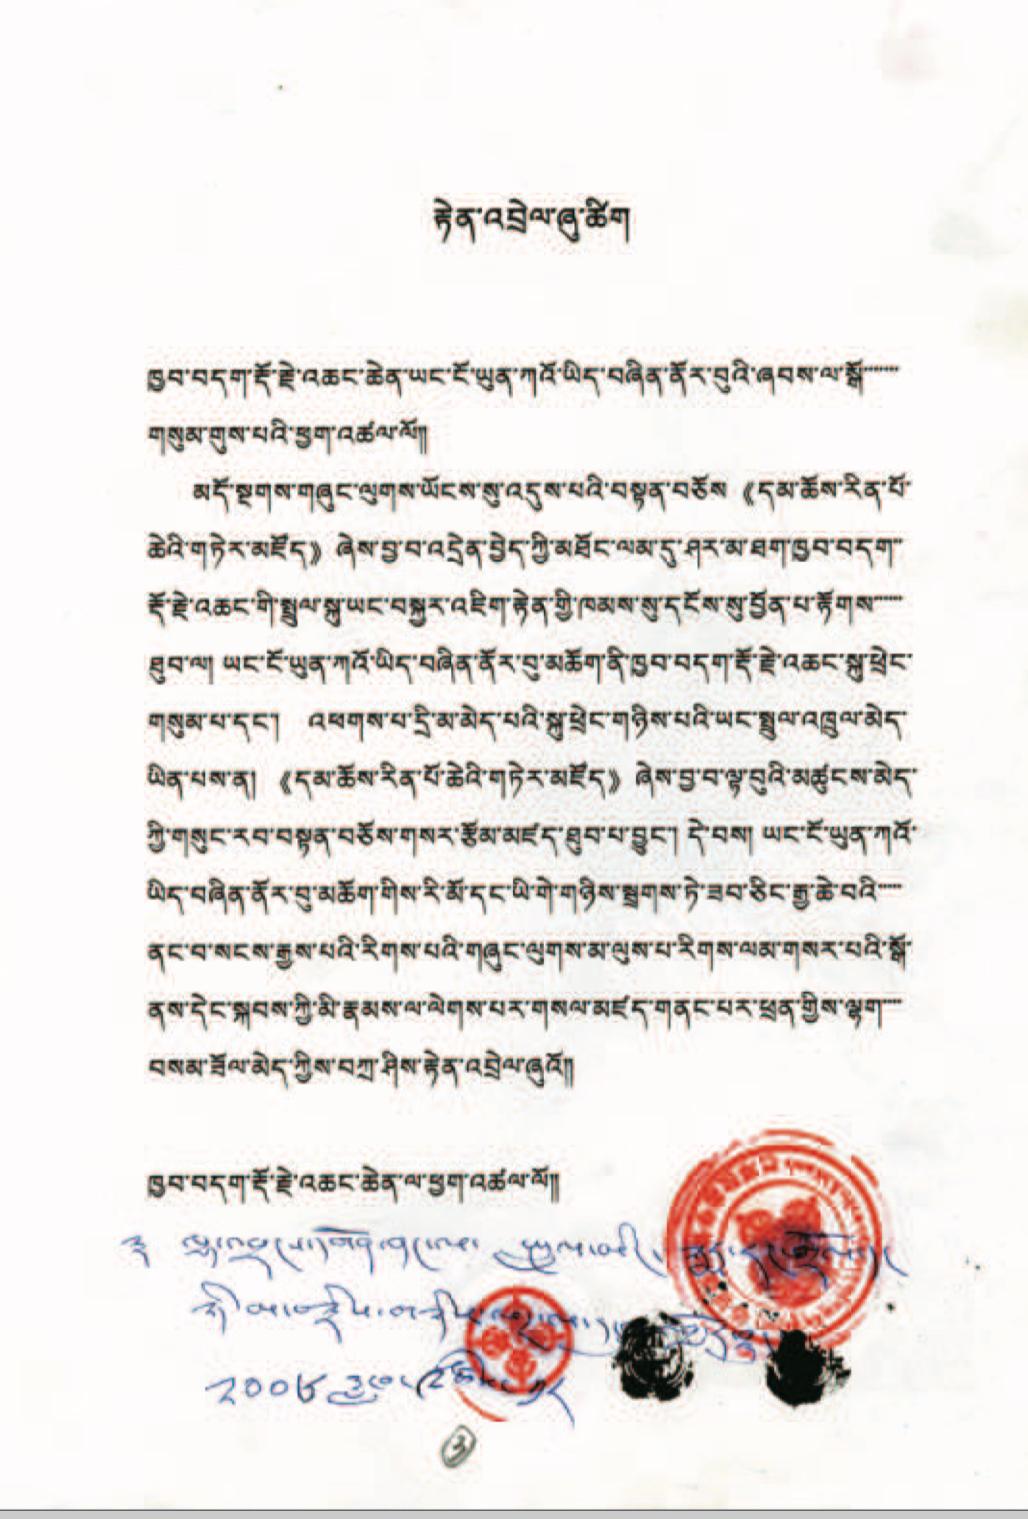 རྟེན་འབྲེལ་ཞུ་ཚིག
ཁྱབ་བདག་རྡོ་རྗེ་འཆང་ཆེན་ཡང་ངོ་ཡུན་ཀའོ་ཡིད་བཞིན་ནོར་བུའི་ཞབས་ལ་སྒོ་
གསུམ་གུས་པའི་ཕྱག་འཚལ་ལོ༎
མདོ་སྔགས་གཞུང་ལུགས་ཡོངས་སུ་འདུས་པའི་བསྟན་བཅོས《དམ་ཆོས་རིན་པོ་
ཆེའི་གཏེར་མཛོད》ཞེས་བྱ་བ་འདྲེན་བྱེད་ཀྱི་མཐོང་ལམ་དུ་ཤར་མ་ཐག་ཁྱབ་བདག་
རྡོ་རྗེ་འཆང་གི་སྤྲུལ་སྐུ་ཡང་བསྐྱར་འཇིག་རྟེན་གྱི་ཁམས་སུ་དངོས་སུ་བྱོན་པ་རྟོགས་
ཐུབ་ལ། ཡང་ངོ་ཡུན་ཀའོ་ཡིད་བཞིན་ནོར་བུ་མཆོག་ནི་ཁྱབ་བདག་རྡོ་རྗེ་འཆང་སྐུ་ཕྲེང་
གསུམ་པ་དང་། འཕགས་པ་དྲི་མ་མེད་པའི་སྐུ་ཕྲེང་གཉིས་པའི་ཡང་སྤྲུལ་འཁྲུལ་མེད་
ཡིན་པས་ན། 《དམ་ཆོས་རིན་པོ་ཆེའི་གཏེར་མཛོད》ཞེས་བྱ་བ་ལྟ་བུའི་མཚུངས་མེད་
ཀྱི་གསུང་རབ་བསྟན་བཅོས་གསར་རྩོམ་མཛད་ཐུབ་པ་བྱུང་། དེ་བས། ཡང་ངོ་ཡུན་ཀའོ་
ཡིད་བཞིན་ནོར་བུ་མཆོག་གིས་རི་མོ་དང་ཡི་གེ་གཉིས་སྦྲགས་ཏེ་ཟབ་ཅིང་རྒྱ་ཆེ་བའི་
ནང་བ་སངས་རྒྱས་པའི་རིགས་པའི་གཞུང་ལུགས་མ་ལུས་པ་རིགས་ལམ་གསར་པའི་སྒོ་
ནས་དེང་སྐབས་ཀྱི་མི་རྣམས་ལ་ལེགས་པར་གསལ་མཛད་གནང་པར་ཕྲན་གྱིས་ལྷག་
བསམ་ཟོལ་མེད་ཀྱིས་བཀྲ་ཤིས་རྟེན་འབྲེལ་ཞུའོ༎
ཁྱབ་བདག་རྡོ་རྗེ་འཆང་ཆེན་ལ་ཕྱག་འཚལ་ལོ༎
༢༠༠༦
3